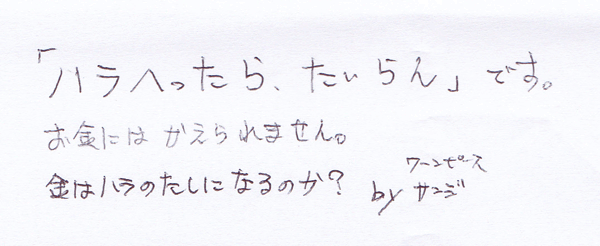 「ハラへったら、たいらん」です。
お金にはかえられません。
ワンピース
金はハラのたしになるのか? by サンジ